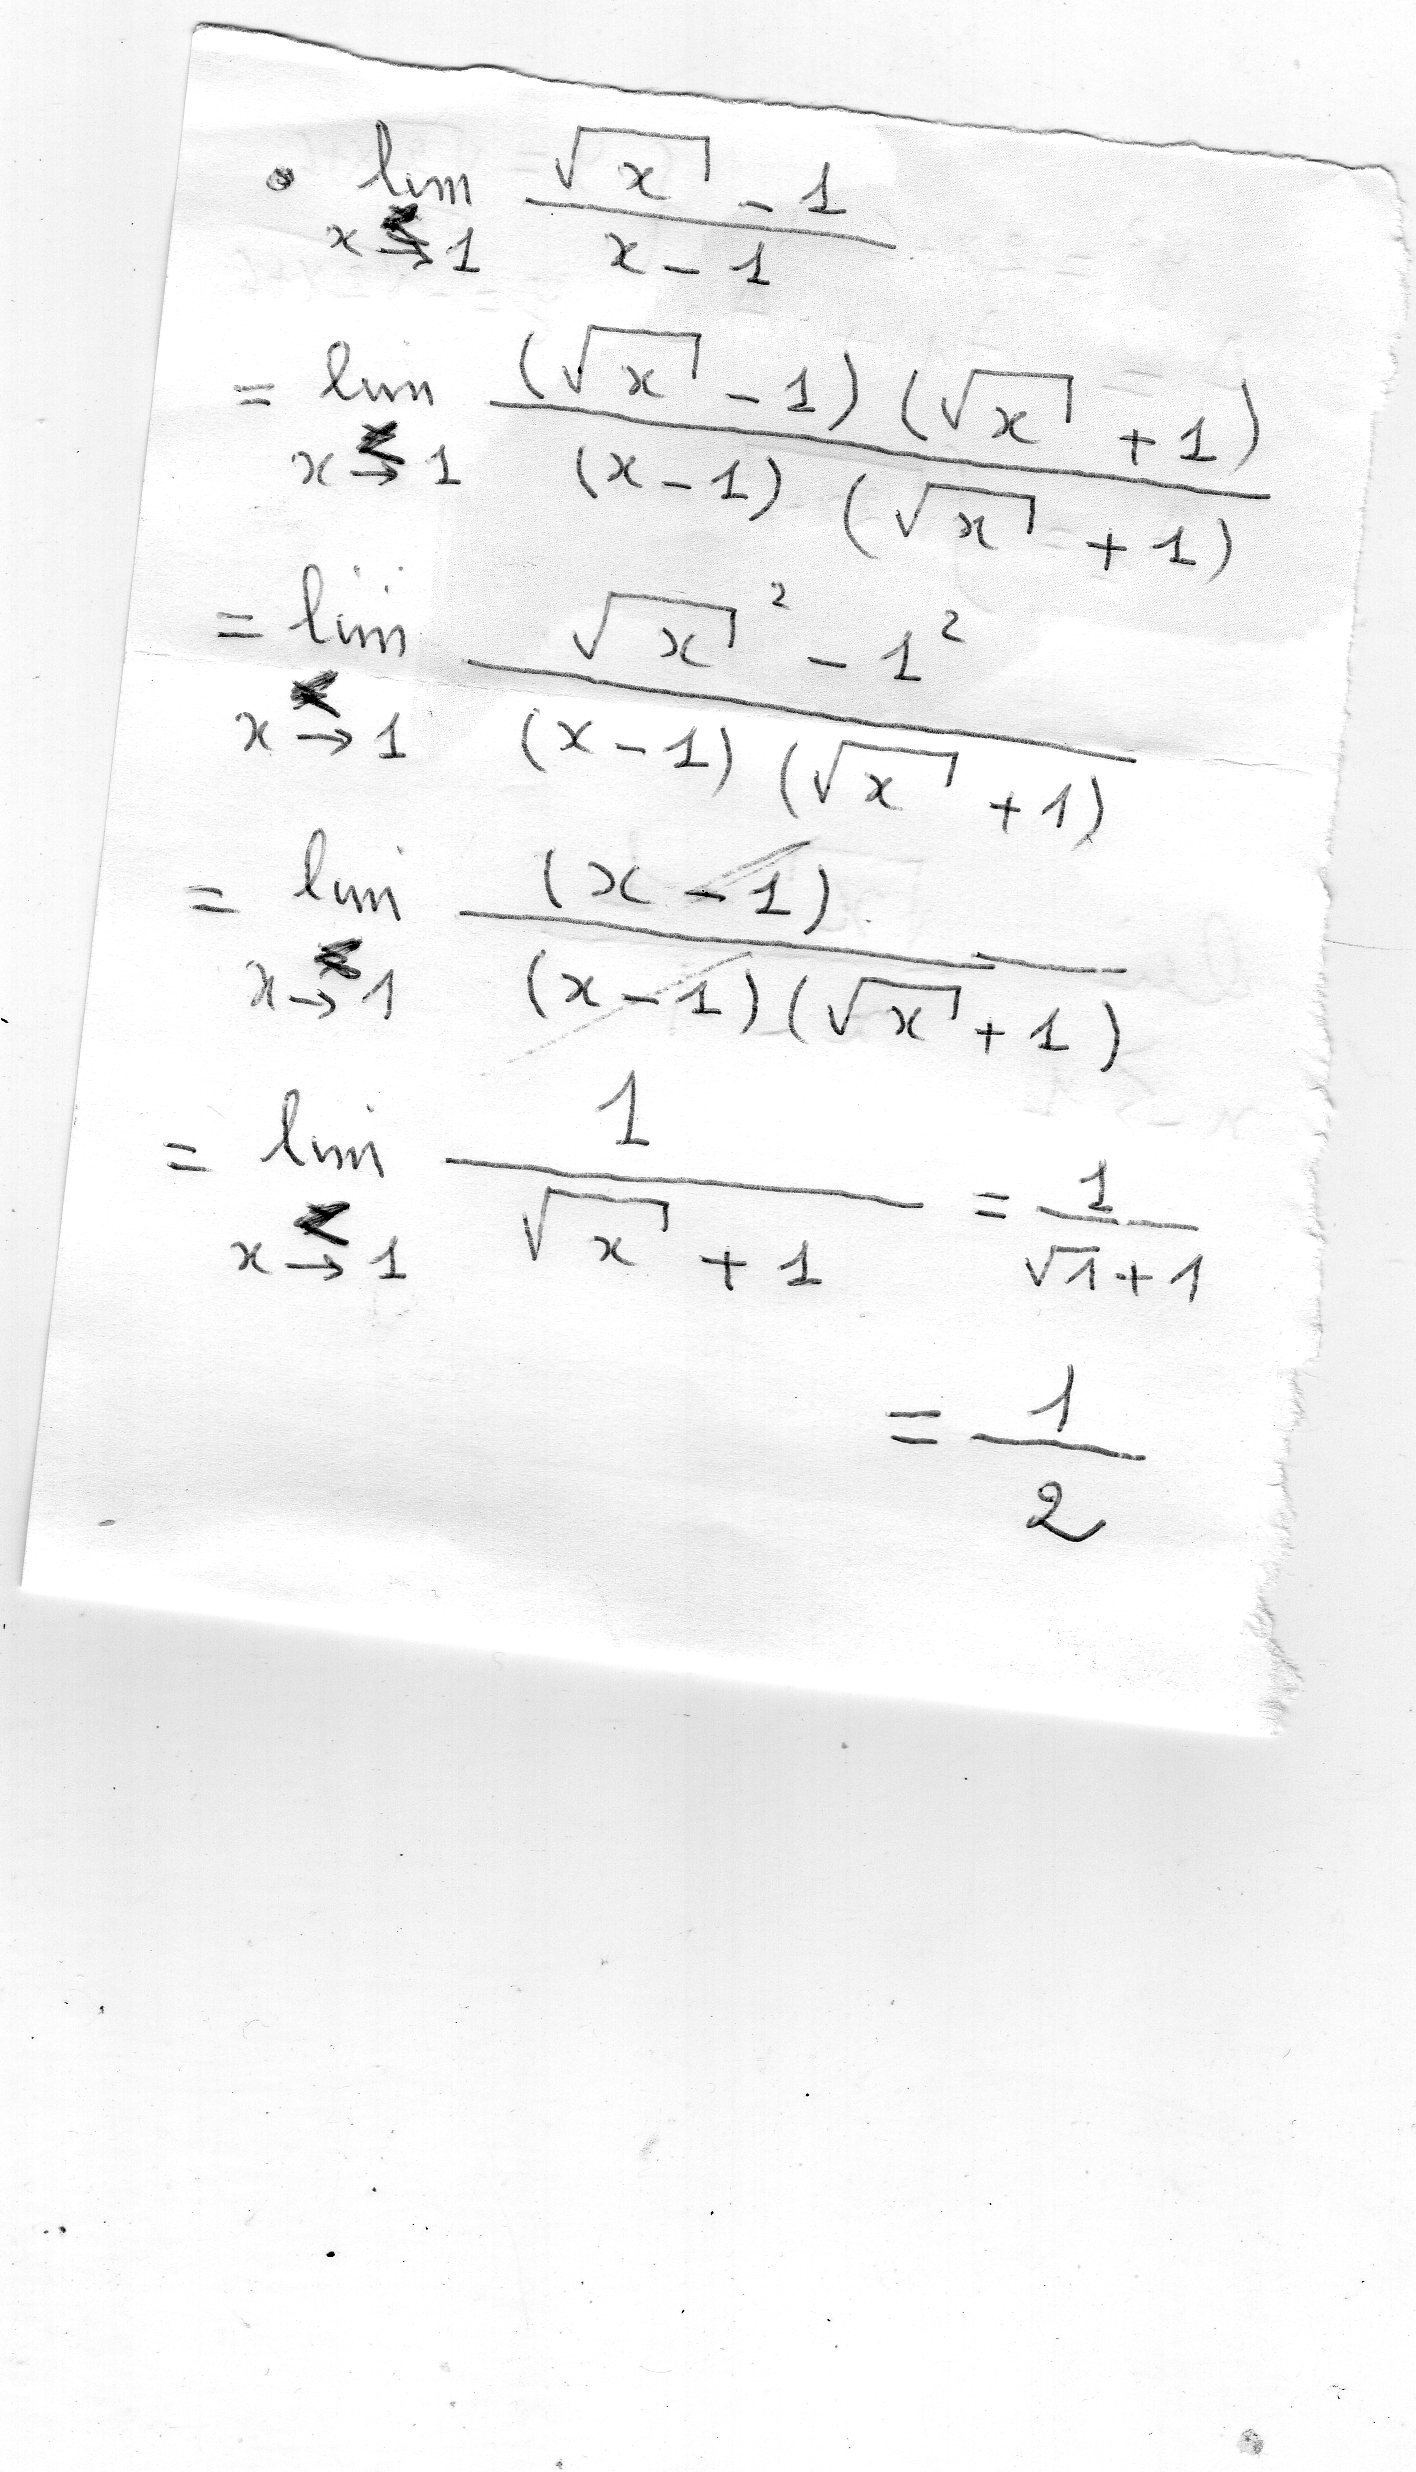 • lim (√x - 1)/(x - 1)
x → 1
= lim ((√x - 1)(√x + 1))/((x - 1)(√x + 1))
x → 1
= lim (√x² - 1²)/((x - 1)(√x + 1))
x → 1
= lim (x - 1)/((x - 1)(√x + 1))
x → 1
= lim 1/(√x + 1) = 1/(√1 + 1)
x → 1
= 1/2